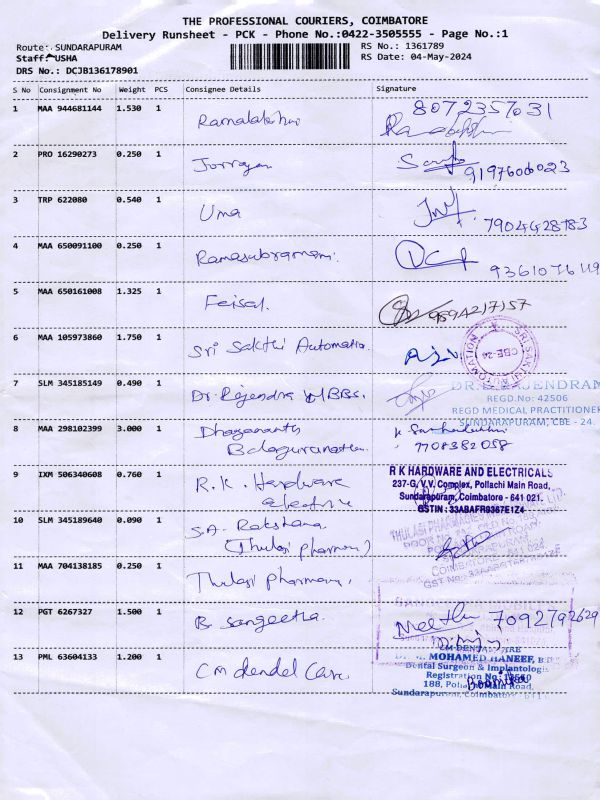 THE PROFESSIONAL COURIERS, COIMBATORE
Delivery Runsheet - PCK - Phone No.:0422-3505555 - Page No.:1
Route: SUNDARAPURAM
RS No.: 1361789
Staff: USHA
RS Date: 04-May-2024
DRS No.: DCJB136178901
S No Consignment No Weight PCS Consignee Details Signature
1 MAA 944681144 1.530 1 Ramalakshmi 8072357031
2 PRO 16290273 0.250 1 9197606023
3 TRP 622080 0.540 1 Uma 7904428783
4 MAA 650091100 0.250 1 Ramasubramani.
5 MAA 650161008 1.325 1 Feisal.
6 MAA 105973860 1.750 1 Sri Sakthi Automation.
SRI SAKTHI AUTOMATION CBE-24
7 SLM 345185149 0.490 1 Dr. Rajendra MBBS.
REGD.No: 42506
REGD MEDICAL PRACTITIONER
SUNDARAPURAM, CBE - 24.
8 MAA 298102399 3.000 1
7708382058
9 IXM 506340608 0.760 1 R.K. Hardware
R K HARDWARE AND ELECTRICALS
237-G, V.V. Complex, Pollachi Main Road,
Sundarapuram, Coimbatore - 641 021.
GSTIN : 33ABAFR9367E1Z4
10 SLM 345189640 0.090 1 S.A. Rakshana
(Thulasi pharmacy)
11 MAA 704138185 0.250 1 Thulasi pharmacy,
12 PGT 6267327 1.500 1 B. Sangeetha. 7092792629
13 PML 63604133 1.200 1 CM dendel Care.
CM DENTAL CARE
MOHAMED HANEEF,
Dental Surgeon & Implantologist
188, Pollachi Main Road,
Sundarapuram, Coimbatore